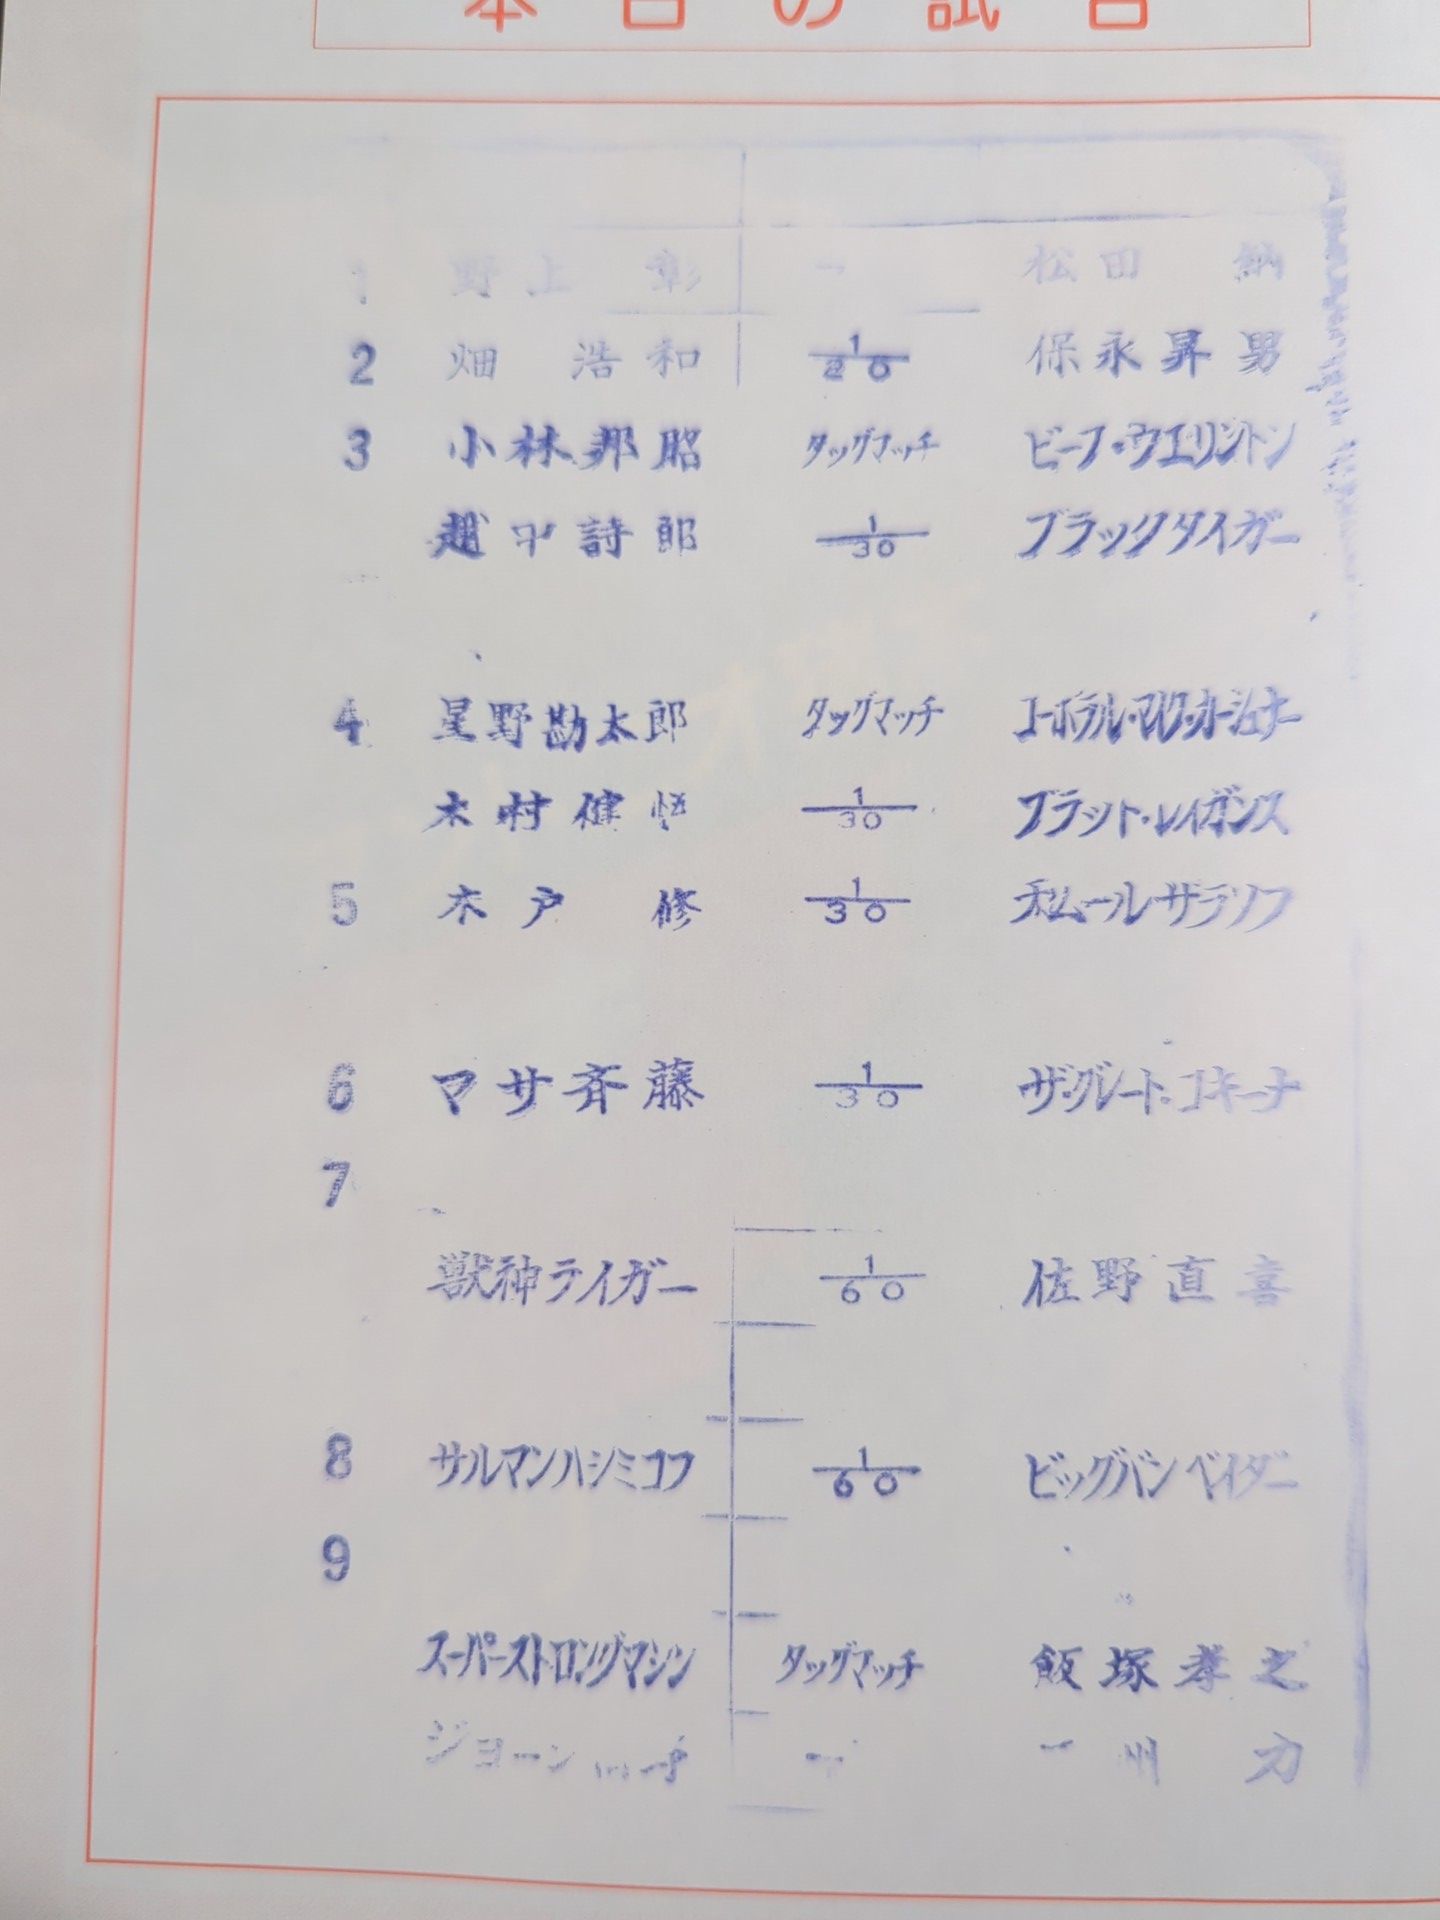 本日の試合
1 野上 彰 松田 納
2 畑 浩和 1/20 保永昇男
3 小林邦昭 タッグマッチ ビーフ・ウエリントン
越中詩郎 1/30 ブラックタイガー
4 星野勘太郎 タッグマッチ コーポラル・マイク・カーシュナー
木村健悟 1/30 ブラット・レイガンス
5 木戸 修 1/30 チムール・ザラソフ
6 マサ斉藤 1/30 ザ・グレート・コキーナ
7
獣神ライガー 1/60 佐野直喜
8 サルマンハシミコフ 1/60 ビッグバンベイダー
9
スーパーストロングマシン タッグマッチ 飯塚孝之
ジョーン 州 力